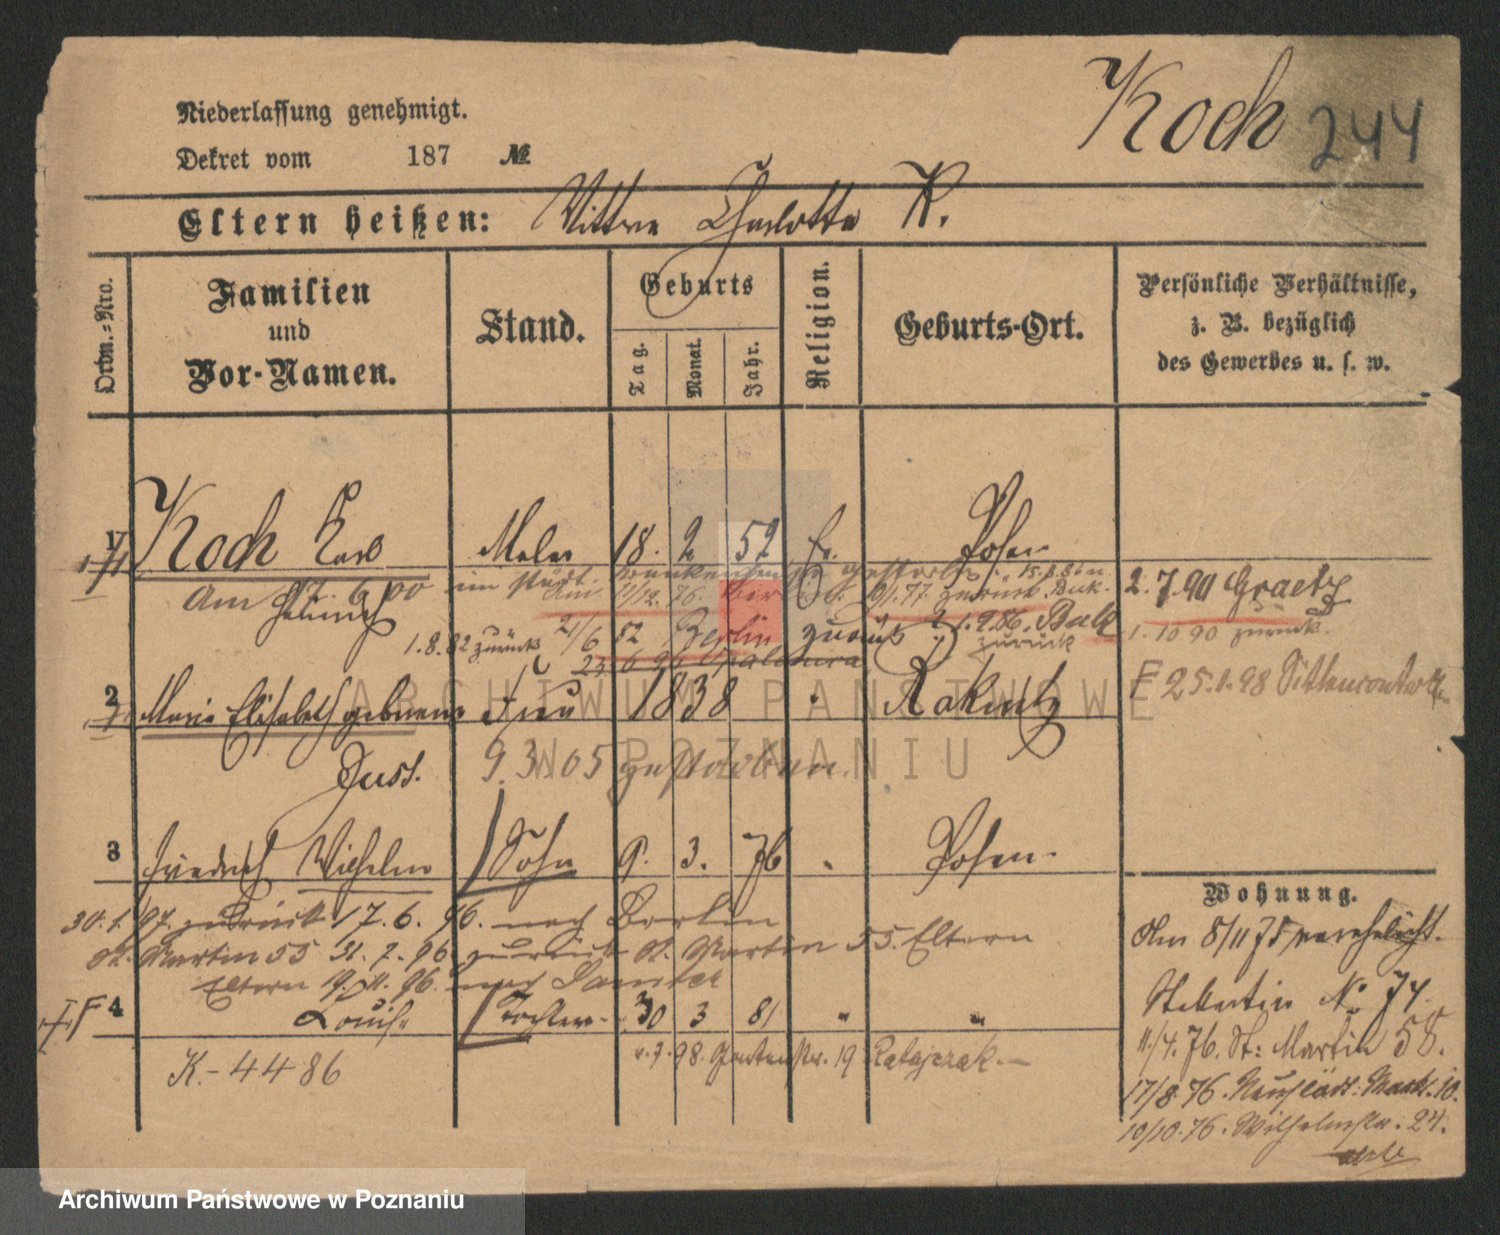 Koch 244
Niederlassung genehmigt.
Dekret vom 187 №
Eltern heißen: Wittwe Charlotte K.
Ordn.=Nro.
Familien
und
Vor-Namen.
Stand.
Geburts
Tag.
Monat.
Jahr.
Religion.
Geburts-Ort.
Persönliche Verhältnisse,
z. B. bezüglich
des Gewerbes u. s. w.
1 Koch Karl Maler 18. 2 52 Ev. Posen
Am 17. 6 00 im städt. Krankenhause gestorben
Heinrich
12. 76. Berlin 77 zurück Buk.
1. 8. 82 zurück 21/6 82 Berlin zurück 86. Buk
zurück
2. 7. 90 Graetz
1. 10. 90 zurück.
25. 1. 98
2 Marie Elisabeth geborene Frau 1838 " Rakwitz
Just. 9. 3. 05 gestorben.
3 Friedrich Wilhelm Sohn 9. 3. 76 " Posen
30. 1. 97. zurück 17. 6. 96. nach Berlin
St. Martin 55 31. 7. 96 zurück St. Martin 55. Eltern
Eltern 19. 11. 96. nach
4 Louise Tochter 30 3 81 " "
K.- 4486
7. 98. Gartenstr. 19 Ratajczak.
Wohnung.
Am 8/11 75 verehelicht.
No 74
11/4. 76. St: Martin 58.
17/8 76. Neustädt: Markt. 10.
10/10. 76. Wilhelmstr. 24.
ARCHIWUM PAŃSTWOWE
W POZNANIU
Archiwum Państwowe w Poznaniu